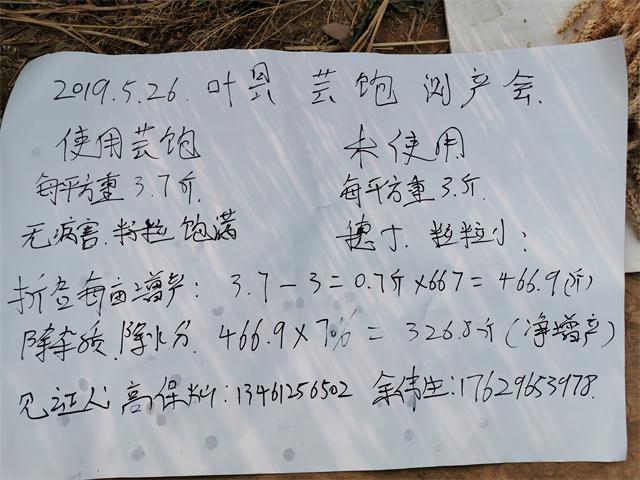 2019.5.26. 叶县 芸饱 测产会.
使用芸饱 未使用
每平方重 3.7斤. 每平方重 3斤.
无病害.籽粒饱满 穗寸.籽粒小;
折合每亩增产: 3.7-3=0.7斤×667=466.9(斤)
除杂质.除水分. 466.9×70%=326.8斤(净增产)
见证人:高保灿:13461256502 余伟生:17629653978.